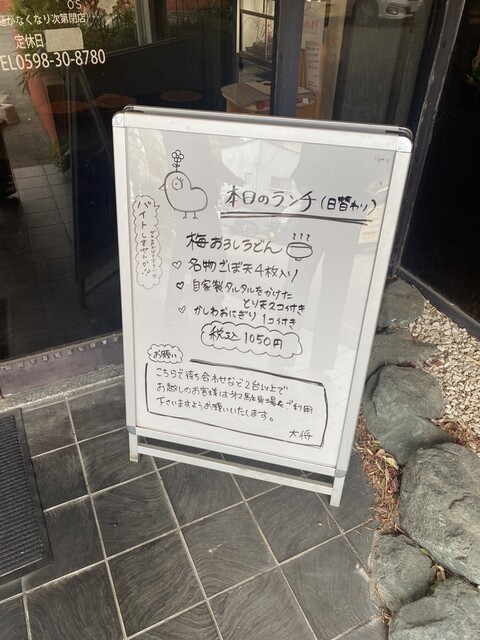 OS
がなくなり次第閉店
定休日
TEL0598-30-8780
本日のランチ(日替わり)
バイトしませんか!!
梅おろしうどん
♡ 名物ごぼ天4枚入り
♡ 自家製タルタルをかけた
とり天2コ付き
♡ かしわおにぎり 1コ付き
税込 1050円
お願い
こちらで待ち合わせなど2台以上で
お越しのお客様は第2駐車場をご利用
下さいますようお願いいたします。
大将